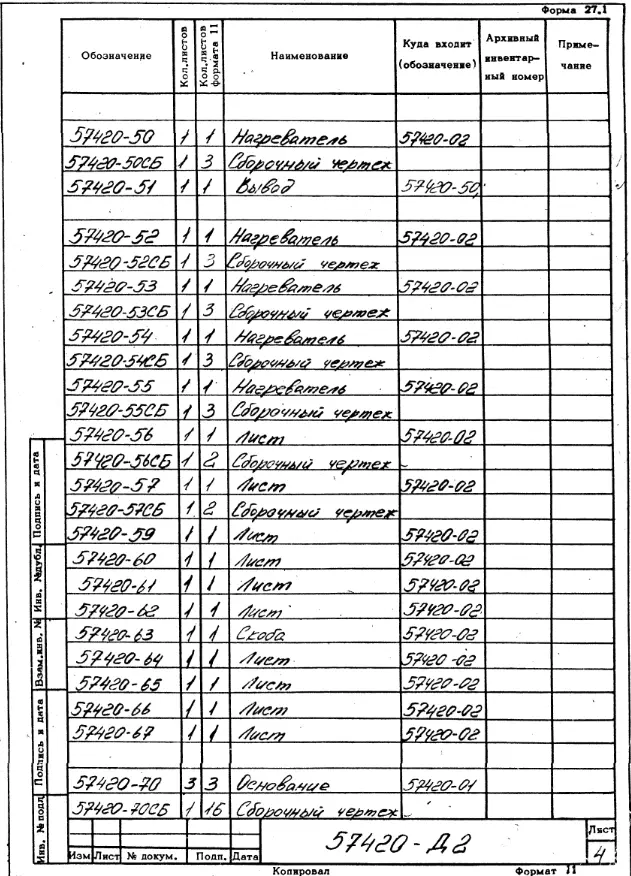 Форма 27.1
Обозначение Кол.листов Кол.листов формата 11 Наименование Куда входит (обозначение) Архивный инвентарный номер Примечание
57420-50 1 1 Нагреватель 57420-02
57420-50СБ 1 3 Сборочный чертеж
57420-51 1 1 Вывод 57420-50
57420-52 1 1 Нагреватель 57420-02
57420-52СБ 1 3 Сборочный чертеж
57420-53 1 1 Нагреватель 57420-02
57420-53СБ 1 3 Сборочный чертеж
57420-54 1 1 Нагреватель 57420-02
57420-54СБ 1 3 Сборочный чертеж
57420-55 1 1 Нагреватель 57420-02
57420-55СБ 1 3 Сборочный чертеж
57420-56 1 1 Лист 57420-02
57420-56СБ 1 2 Сборочный чертеж
57420-57 1 1 Лист 57420-02
57420-57СБ 1 2 Сборочный чертеж
57420-59 1 1 Лист 57420-02
57420-60 1 1 Лист 57420-02
57420-61 1 1 Лист 57420-02
57420-62 1 1 Лист 57420-02
57420-63 1 1 Скоба 57420-02
57420-64 1 1 Лист 57420-02
57420-65 1 1 Лист 57420-02
57420-66 1 1 Лист 57420-02
57420-67 1 1 Лист 57420-02
57420-70 3 3 Основание 57420-01
57420-70СБ 1 16 Сборочный чертеж
Подпись и дата
Инв. №дубл.
Взам.инв. №
Подпись и дата
Инв. №подл
Изм Лист № докум. Подп. Дата
57420-Д2
Лист
4
Копировал Формат 11